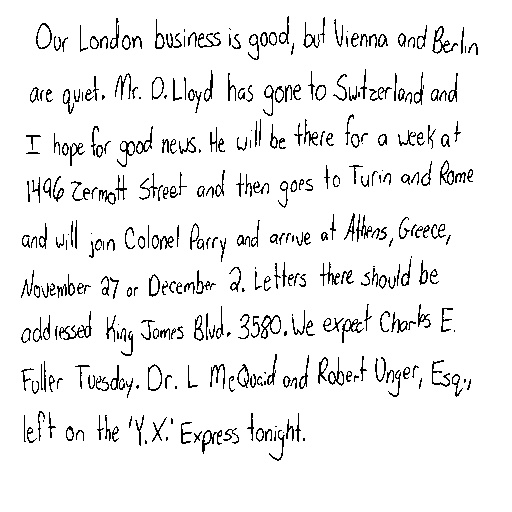 Our London business is good, but Vienna and Berlin
are quiet. Mr. D. Lloyd has gone to Switzerland and
I hope for good news. He will be there for a week at
1496 Zermott Street and then goes to Turin and Rome
and will join Colonel Parry and arrive at Athens, Greece,
November 27 or December 2. Letters there should be
addressed King James Blvd. 3580. We expect Charles E.
Fuller Tuesday. Dr. L McQuaid and Robert Unger, Esq.,
left on the 'Y.X.' Express tonight.